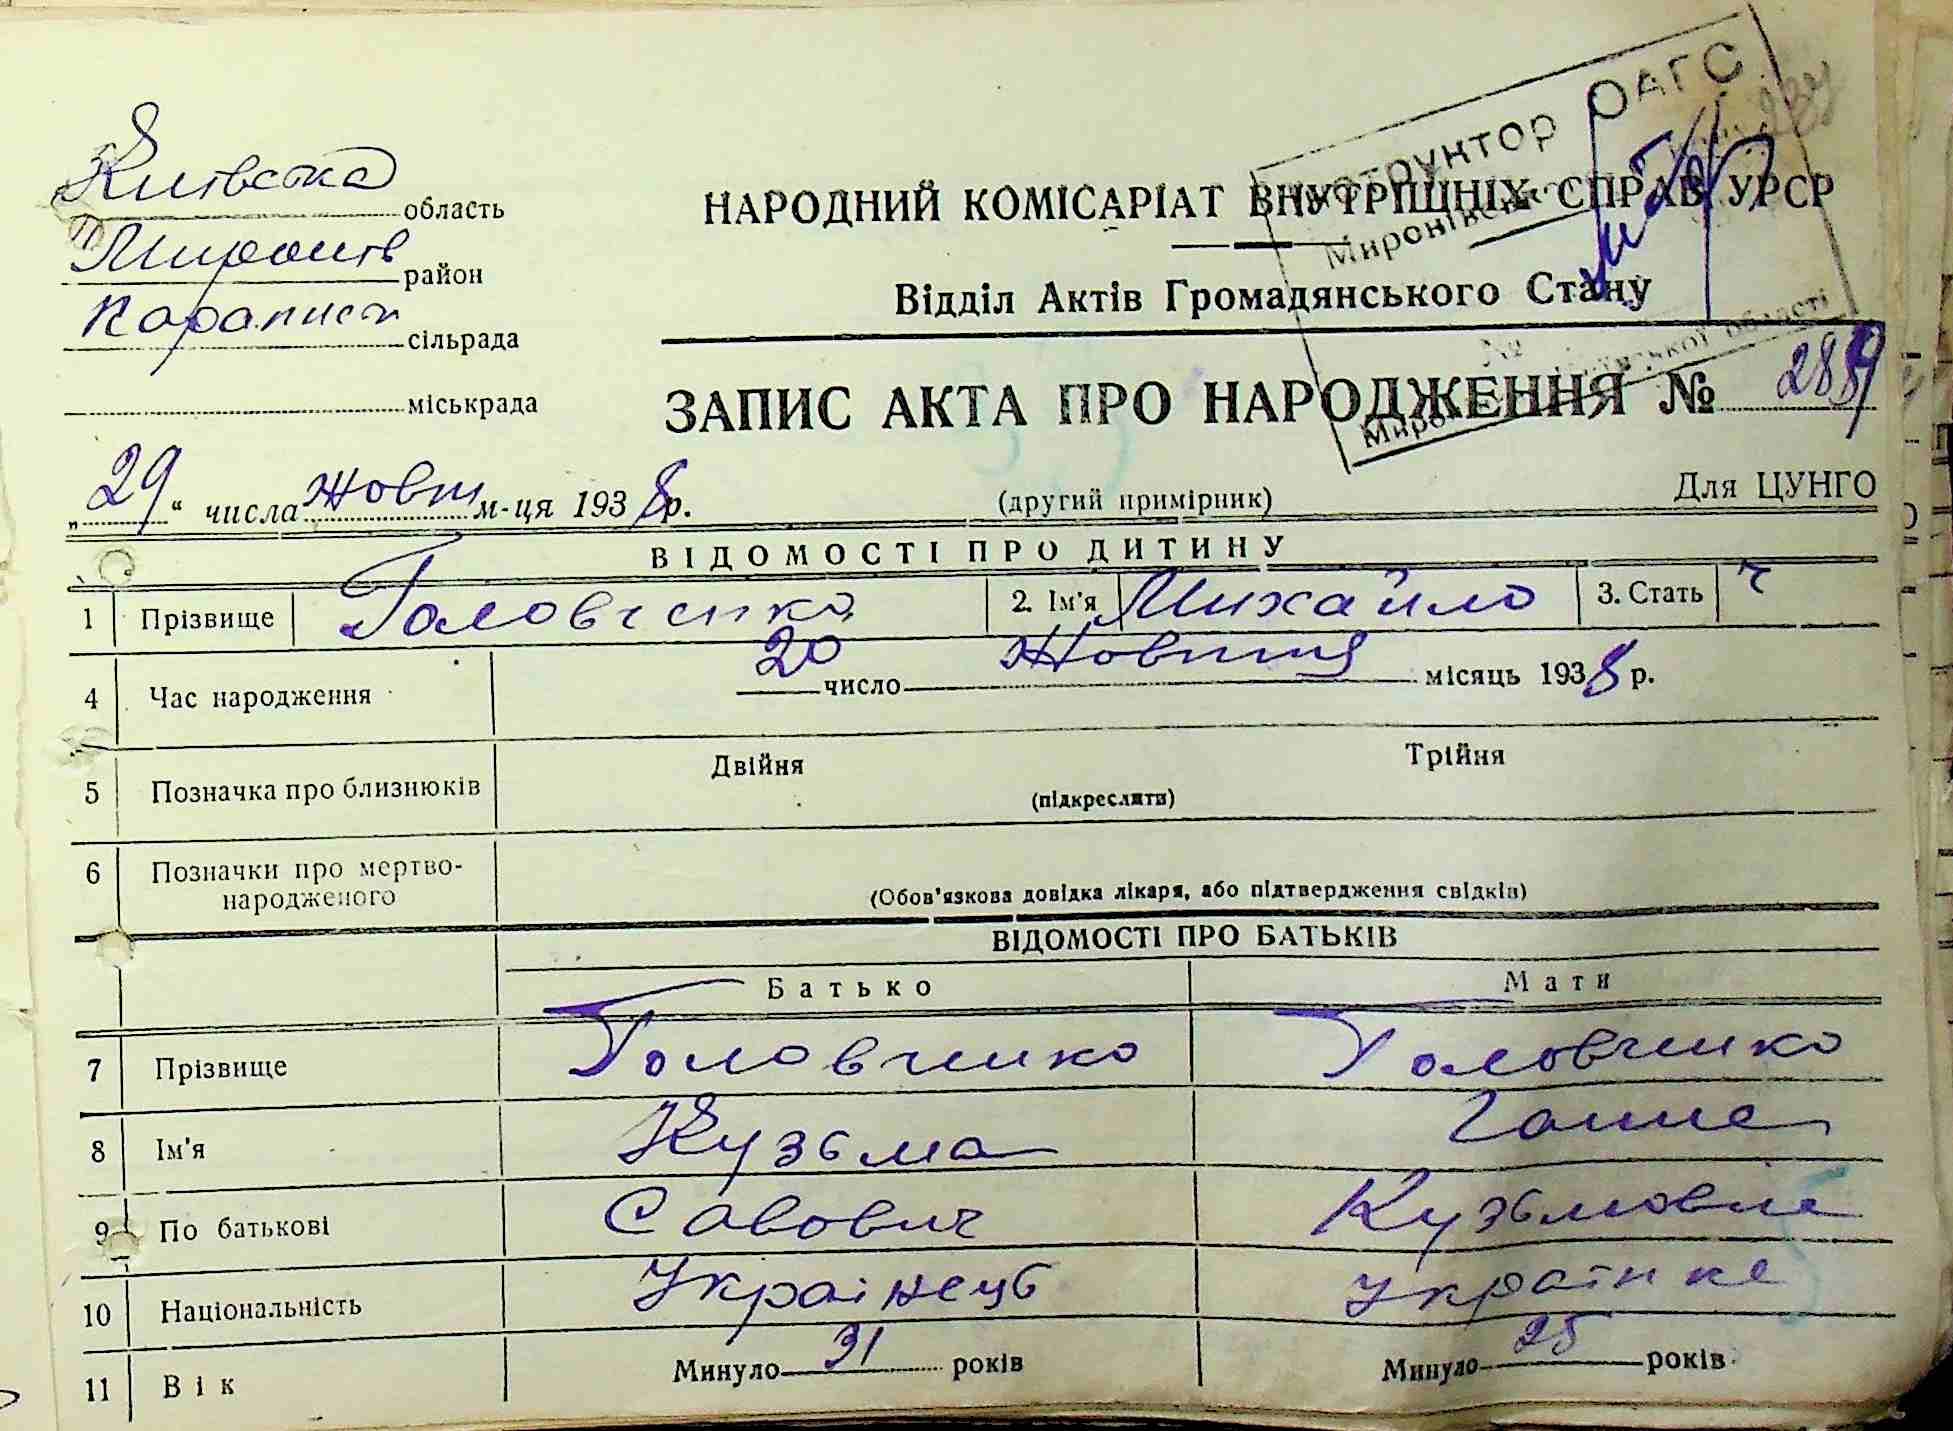 Київська область
Миронів район
Карапиш сільрада
міськрада
Інструктор ОАГС
НАРОДНИЙ КОМІСАРІАТ ВНУТРІШНІХ СПРАВ УРСР
Відділ Актів Громадянського Стану
ЗАПИС АКТА ПРО НАРОДЖЕННЯ №
„29“ числа Жовт м-ця 1938 р.
(другий примірник)
Для ЦУНГО
ВІДОМОСТІ ПРО ДИТИНУ
1 Прізвище Головченко 2. Ім'я Михайло 3. Стать ч
4 Час народження 20 число Жовтня місяць 1938 р.
5 Позначка про близнюків Двійня Трійня
(підкреслити)
6 Позначки про мертво-
народженого (Обов'язкова довідка лікаря, або підтвердження свідків)
ВІДОМОСТІ ПРО БАТЬКІВ
Батько Мати
7 Прізвище Головченко Головченко
8 Ім'я Кузьма Ганна
9 По батькові Савович Кузьмовна
10 Національність Українець Українка
11 Вік Минуло 31 років Минуло 25 років